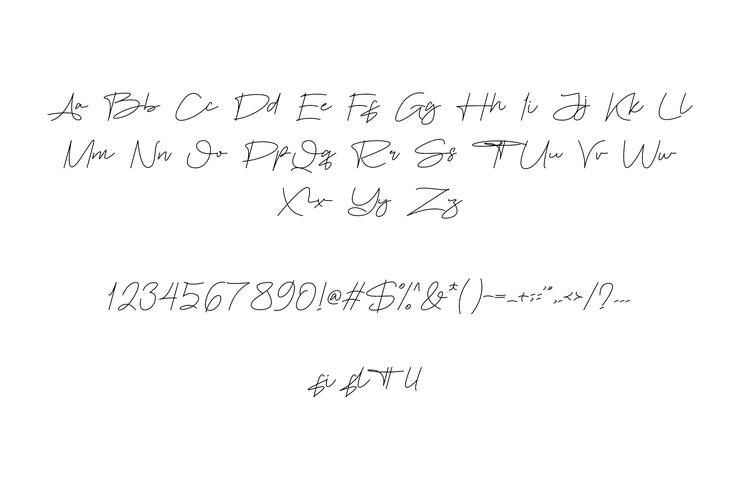 Aa Bb Cc Dd Ee Ff Gg Hh Ii Jj Kk Ll
Mm Nn Oo Pp Qq Rr Ss Tt Uu Vv Ww
Xx Yy Zz
1234567890!@#$%^&*()-=_+;:'",.<>/?...
fi fl tt ll